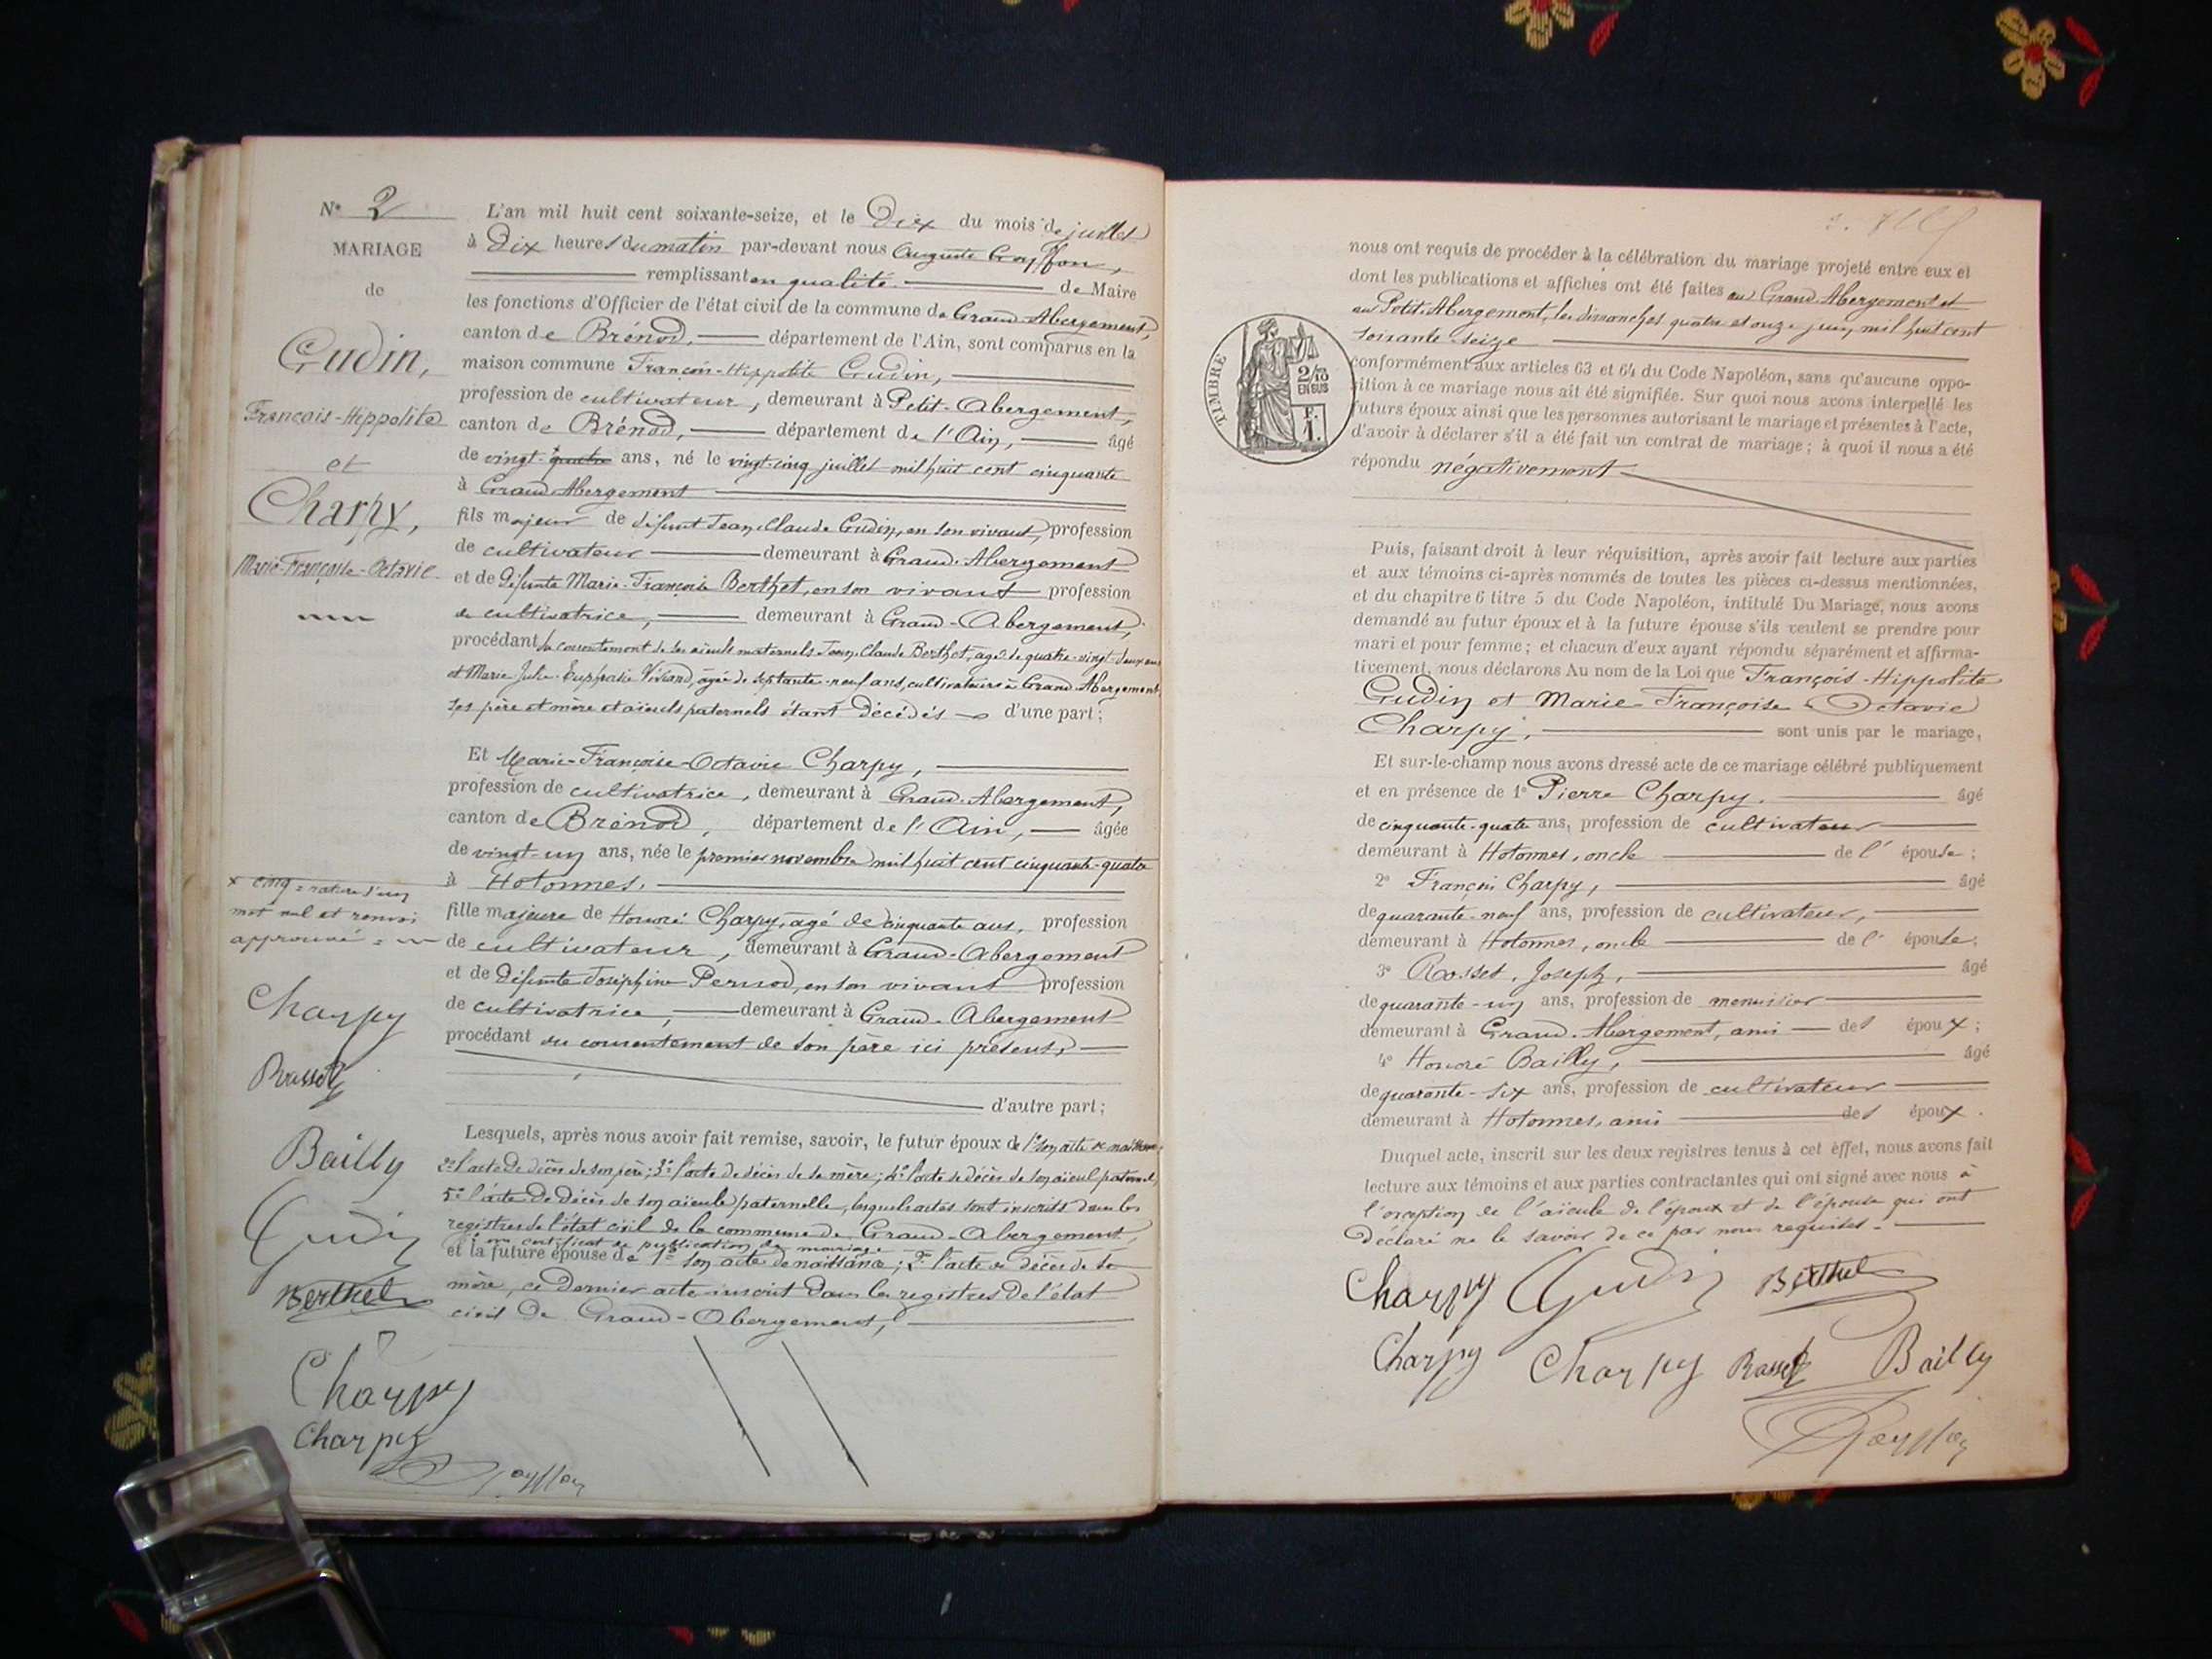 N° 2
MARIAGE
de
Gudin,
François-Hippolite
et
Charpy,
Marie-Françoise-Octavie
x cinq = rature d'un
mot nul et renvoi
approuvé =
Charpy
Rosset
Bailly
Gudin
Berthet
Charpy
Charpy
L'an mil huit cent soixante-seize, et le Dix du mois de juillet
à Dix heures du matin par-devant nous Auguste
remplissant en qualité de Maire
les fonctions d'Officier de l'état civil de la commune de Grand-Abergement,
canton de Brénod, département de l'Ain, sont comparus en la
maison commune François-Hippolite Gudin,
profession de cultivateur, demeurant à Petit-Abergement,
canton de Brénod, département de l'Ain, âgé
de vingt-quatre ans, né le vingt-cinq juillet mil huit cent cinquante
à Grand-Abergement
fils majeur de défunt Jean-Claude Gudin, en son vivant, profession
de cultivateur demeurant à Grand-Abergement
et de défunte Marie-Françoise Berthet, en son vivant profession
de cultivatrice, demeurant à Grand-Abergement,
procédant du consentement de ses aïeuls maternels Jean-Claude Berthet, âgé de quatre-vingt-deux ans
et Marie-Julie-Euphrasie Viviand, âgée de septante-neuf ans, cultivateurs à Grand-Abergement
ses père et mère et aïeuls paternels étant décédés d'une part;
Et Marie-Françoise-Octavie Charpy,
profession de cultivatrice, demeurant à Grand-Abergement,
canton de Brénod, département de l'Ain, âgée
de vingt-un ans, née le premier novembre mil huit cent cinquante-quatre
à Hotonnes.
fille majeure de Honoré Charpy, âgé de cinquante ans, profession
de cultivateur, demeurant à Grand-Abergement
et de défunte Joséphine Pernod, en son vivant profession
de cultivatrice, demeurant à Grand-Abergement
procédant du consentement de son père ici présent,
d'autre part;
Lesquels, après nous avoir fait remise, savoir, le futur époux de 1° son acte de naissance
2° l'acte de décès de son père; 3° l'acte de décès de sa mère; 4° l'acte de décès de son aïeul paternel,
5° l'acte de décès de son aïeule paternelle, lesquels actes sont inscrits dans les
registres de l'état civil de la commune de Grand-Abergement,
6° un certificat de publication de mariage
et la future épouse de 1° son acte de naissance; 2° l'acte de décès de sa
mère, ce dernier acte inscrit dans les registres de l'état
civil de Grand-Abergement,
nous ont requis de procéder à la célébration du mariage projeté entre eux et
dont les publications et affiches ont été faites au Grand-Abergement et
au Petit-Abergement, les dimanches quatre et onze juin mil huit cent
soixante seize
TIMBRE
2/10
EN SUS
F.
1.
conformément aux articles 63 et 64 du Code Napoléon, sans qu'aucune oppo-
sition à ce mariage nous ait été signifiée. Sur quoi nous avons interpellé les
futurs époux ainsi que les personnes autorisant le mariage et présentes à l'acte,
d'avoir à déclarer s'il a été fait un contrat de mariage; à quoi il nous a été
répondu négativement
Puis, faisant droit à leur réquisition, après avoir fait lecture aux parties
et aux témoins ci-après nommés de toutes les pièces ci-dessus mentionnées,
et du chapitre 6 titre 5 du Code Napoléon, intitulé Du Mariage, nous avons
demandé au futur époux et à la future épouse s'ils veulent se prendre pour
mari et pour femme; et chacun d'eux ayant répondu séparément et affirma-
tivement, nous déclarons Au nom de la Loi que François-Hippolite
Gudin et Marie-Françoise-Octavie
Charpy, sont unis par le mariage,
Et sur-le-champ nous avons dressé acte de ce mariage célébré publiquement
et en présence de 1° Pierre Charpy. âgé
de cinquante-quatre ans, profession de cultivateur
demeurant à Hotonnes, oncle de l' épouse;
2° François Charpy, âgé
de quarante-neuf ans, profession de cultivateur,
demeurant à Hotonnes, oncle de l' épouse;
3° Rosset, Joseph, âgé
de quarante-un ans, profession de menuisier
demeurant à Grand-Abergement, ami des époux;
4° Honoré Bailly, âgé
de quarante-six ans, profession de cultivateur
demeurant à Hotonnes, ami des époux.
Duquel acte, inscrit sur les deux registres tenus à cet effet, nous avons fait
lecture aux témoins et aux parties contractantes qui ont signé avec nous à
l'exception de l'aïeule de l'époux et de l'épouse qui ont
déclaré ne le savoir de ce par nous requises.
Charpy Gudin Berthet
Charpy Charpy Rosset Bailly